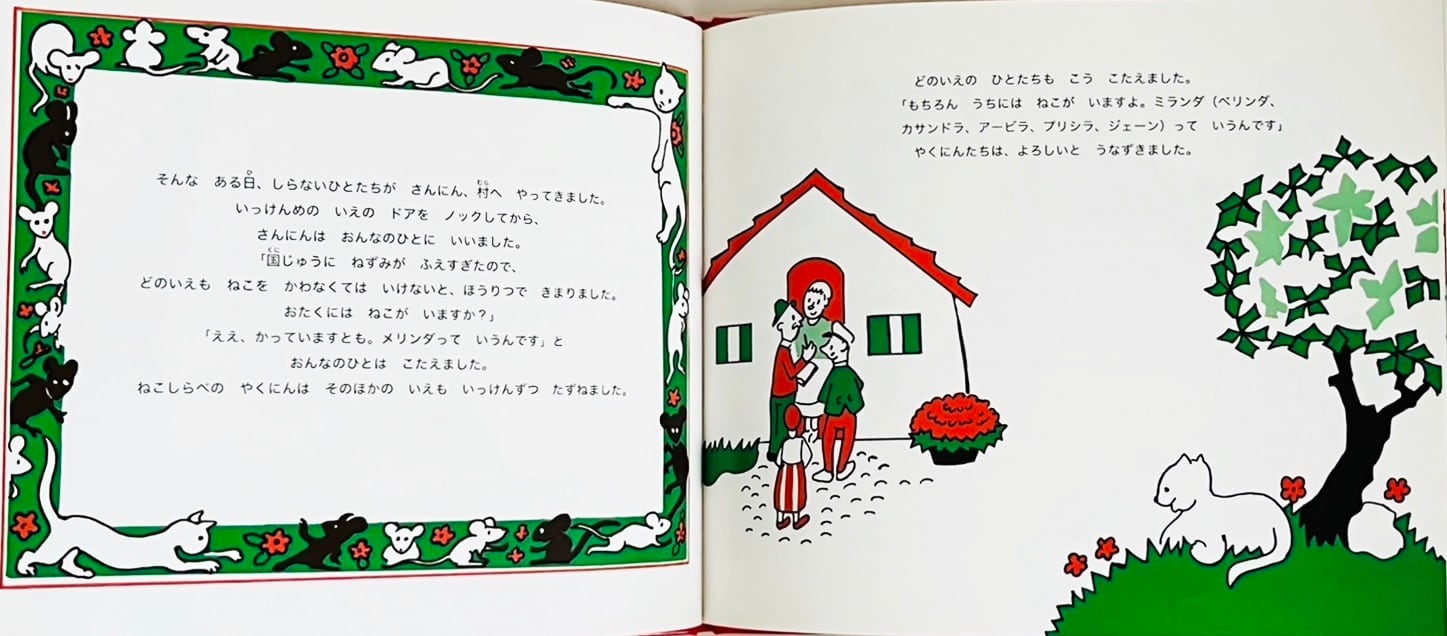 そんな　ある日、しらないひとたちが　さんにん、村へ　やってきました。
いっけんめの　いえの　ドアを　ノックしてから、
さんにんは　おんなのひとに　いいました。
「国じゅうに　ねずみが　ふえすぎたので、
どのいえも　ねこを　かわなくては　いけないと、ほうりつで　きまりました。
おたくには　ねこが　いますか？」
「ええ、かっていますとも。メリンダって　いうんです」と
おんなのひとは　こたえました。
ねこしらべの　やくにんは　そのほかの　いえも　いっけんずつ　たずねました。
どのいえの　ひとたちも　こう　こたえました。
「もちろん　うちには　ねこが　いますよ。ミランダ（ベリンダ、
カサンドラ、アービラ、プリシラ、ジェーン）って　いうんです」
やくにんたちは、よろしいと　うなずきました。